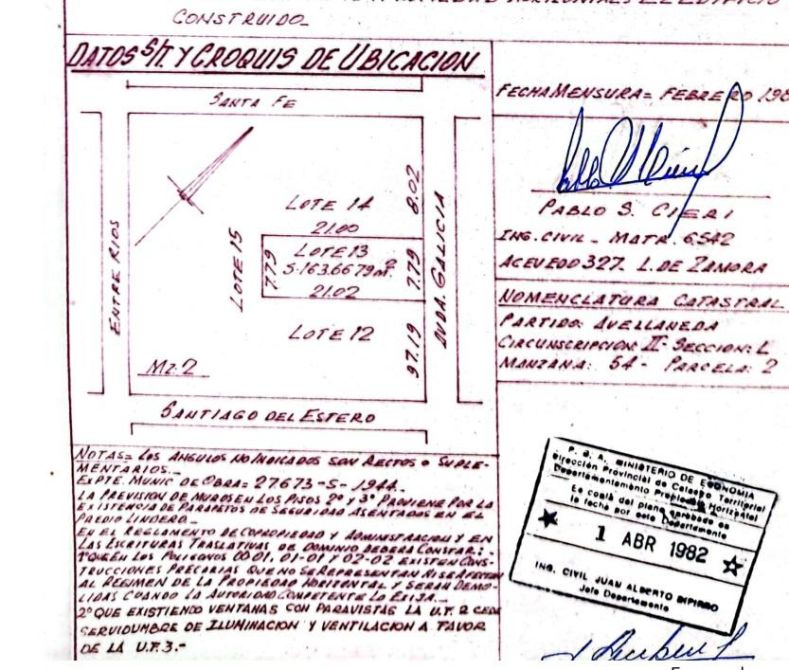 HORIZONTALES EL EDIFICIO
CONSTRUIDO_
DATOS S/T. Y CROQUIS DE UBICACION
SANTA FE
ENTRE RIOS
LOTE 15
LOTE 14
8.02
21.00
LOTE 13
7.79
S=163.6679m²
7.79
21.02
AVDA. GALICIA
LOTE 12
97.19
Mz. 2
SANTIAGO DEL ESTERO
NOTAS= LOS ANGULOS NO INDICADOS SON RECTOS o SUPLE-
MENTARIOS._
EXPTE. MUNIC DE OBRA= 27673-S-1944_
LA PREVISION DE MUROS EN LOS PISOS 2º y 3º PROVIENE POR LA
EXISTENCIA DE PARAPETOS DE SEGURIDAD ASENTADOS EN EL
PREDIO LINDERO._
EN EL REGLAMENTO DE COPROPIEDAD Y ADMINISTRACION Y EN
LAS ESCRITURAS TRASLATIVAS DE DOMINIO DEBERA CONSTAR:-
1º QUE EN LOS POLIGONOS 00-01, 01-01 y 02-02 EXISTEN CONS-
TRUCCIONES PRECARIAS QUE NO SE REPRESENTAN NI SE AFECTAN
AL REGIMEN DE LA PROPIEDAD HORIZONTAL Y SERAN DEMO-
LIDAS CUANDO LA AUTORIDAD COMPETENTE LO EXIJA._
2º QUE EXISTIENDO VENTANAS CON PARAVISTAS LA U.T. 2 CEDE
SERVIDUMBRE DE ILUMINACION Y VENTILACION A FAVOR
DE LA U.T. 3.-
FECHA MENSURA= FEBRERO 198
PABLO S. CIERI
ING. CIVIL_ MATR. 6542
ACEVEDO 327_ L. DE ZAMORA
NOMENCLATURA CATASTRAL
PARTIDO: AVELLANEDA
CIRCUNSCRIPCION: II- SECCION: L
MANZANA: 54 - PARCELA: 2
P. B. A. MINISTERIO DE ECONOMIA
Dirección Provincial de Catastro Territorial
Departamento Propiedad Horizontal
Es copia del plano aprobado en
la fecha por este Departamento
1 ABR 1982
ING. CIVIL JUAN ALBERTO
Jefe Departamento